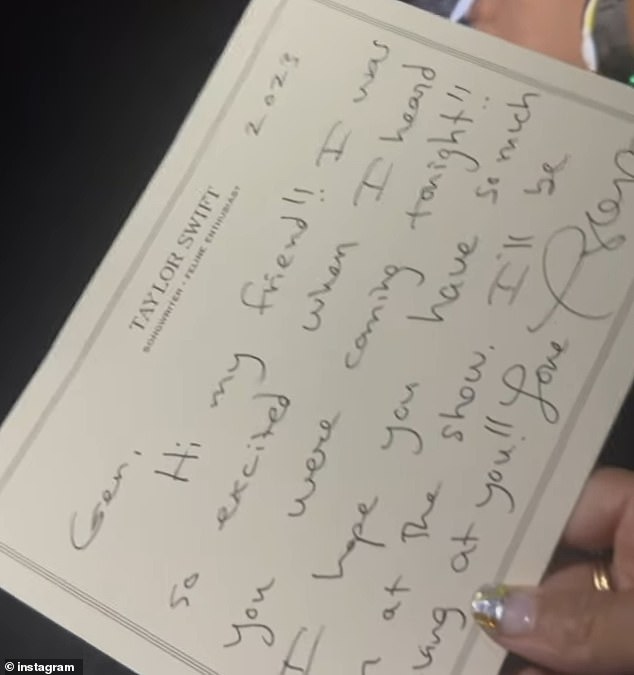 TAYLOR SWIFT
SONGWRITER • FELINE ENTHUSIAST
2023
Geri,
Hi my friend!! I was
so excited when I heard
you were coming tonight!!
I hope you have so much
at the show. I'll be
at you!! Love
© instagram